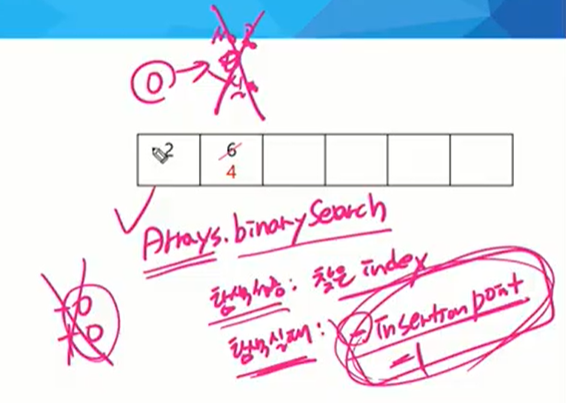 0
2 6
4
Arrays.binarySearch
탐색성공: 찾은 index
탐색실패: - insertion point
-1
+0
+0